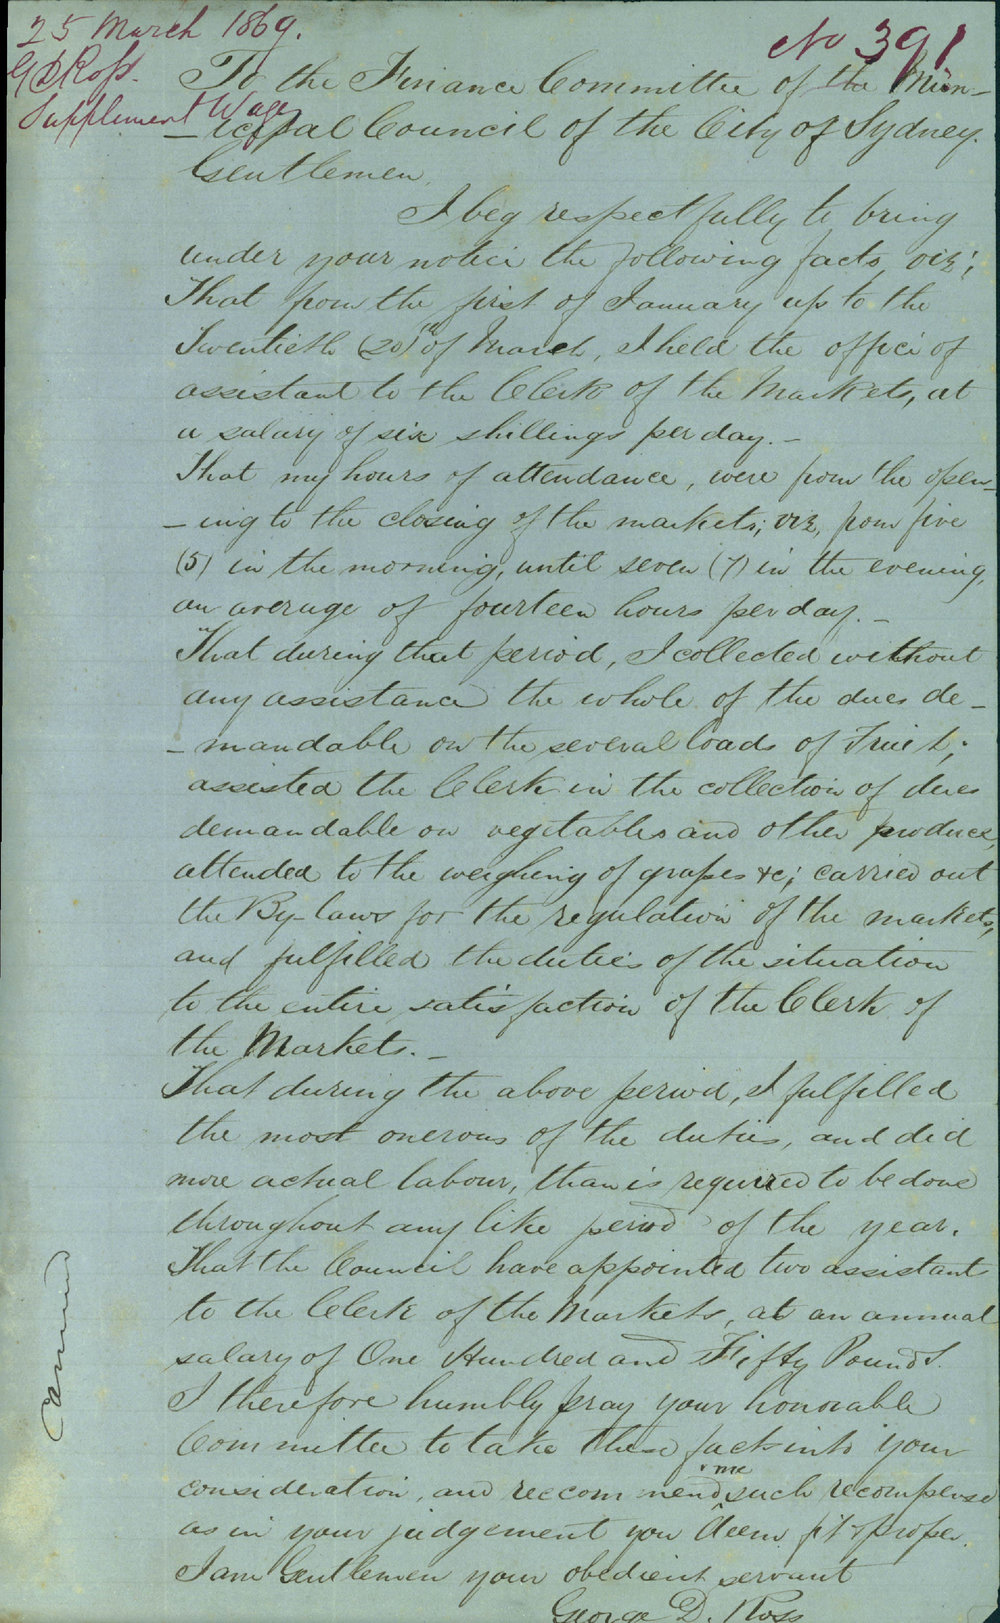 25 March 1869.
No 391
G D Ross.
Supplement Wages
To the Finance Committee of the Mun-
-icipal Council of the City of Sydney.
Gentlemen,
I beg respectfully to bring
under your notice the following facts, viz;
That from the first of January up to the
Twentieth (20)th of March, I held the office of
assistant to the Clerk of the Markets, at
a salary of six shillings per day. -
That my hours of attendance, were from the open-
-ing to the closing of the markets; viz, from five
(5) in the morning, until seven (7) in the evening,
an average of fourteen hours per day. -
That during that period, I collected without
any assistance the whole of the dues de-
-mandable on the several loads of Fruit;
assisted the Clerk in the collection of dues
demandable on vegetables and other produce,
attended to the weighing of grapes &c; carried out
the By-laws for the regulation of the markets,
and fulfilled the duties of the situation
to the entire satisfaction of the Clerk of
the Markets. -
That during the above period, I fulfilled
the most onerous of the duties, and did
more actual labour, than is required to be done
throughout any like period of the year.
That the Council have appointed two assistant
to the Clerk of the Markets, at an annual
salary of One Hundred and Fifty Pounds.
I therefore humbly pray your honorable
Committee to take these facts into your
consideration, and reccommend me such recompense
as in your judgement you deem fit & proper.
I am Gentlemen your obedient servant
George D. Ross